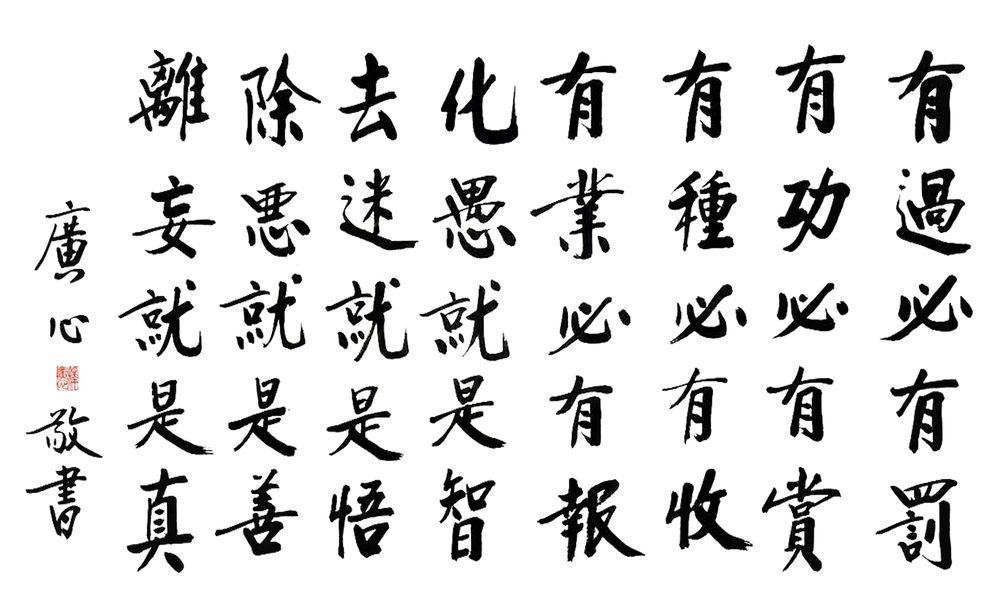 有過必有罰
有功必有賞
有種必有收
有業必有報
化愚就是智
去迷就是悟
除悪就是善
離妄就是真
廣心敬書